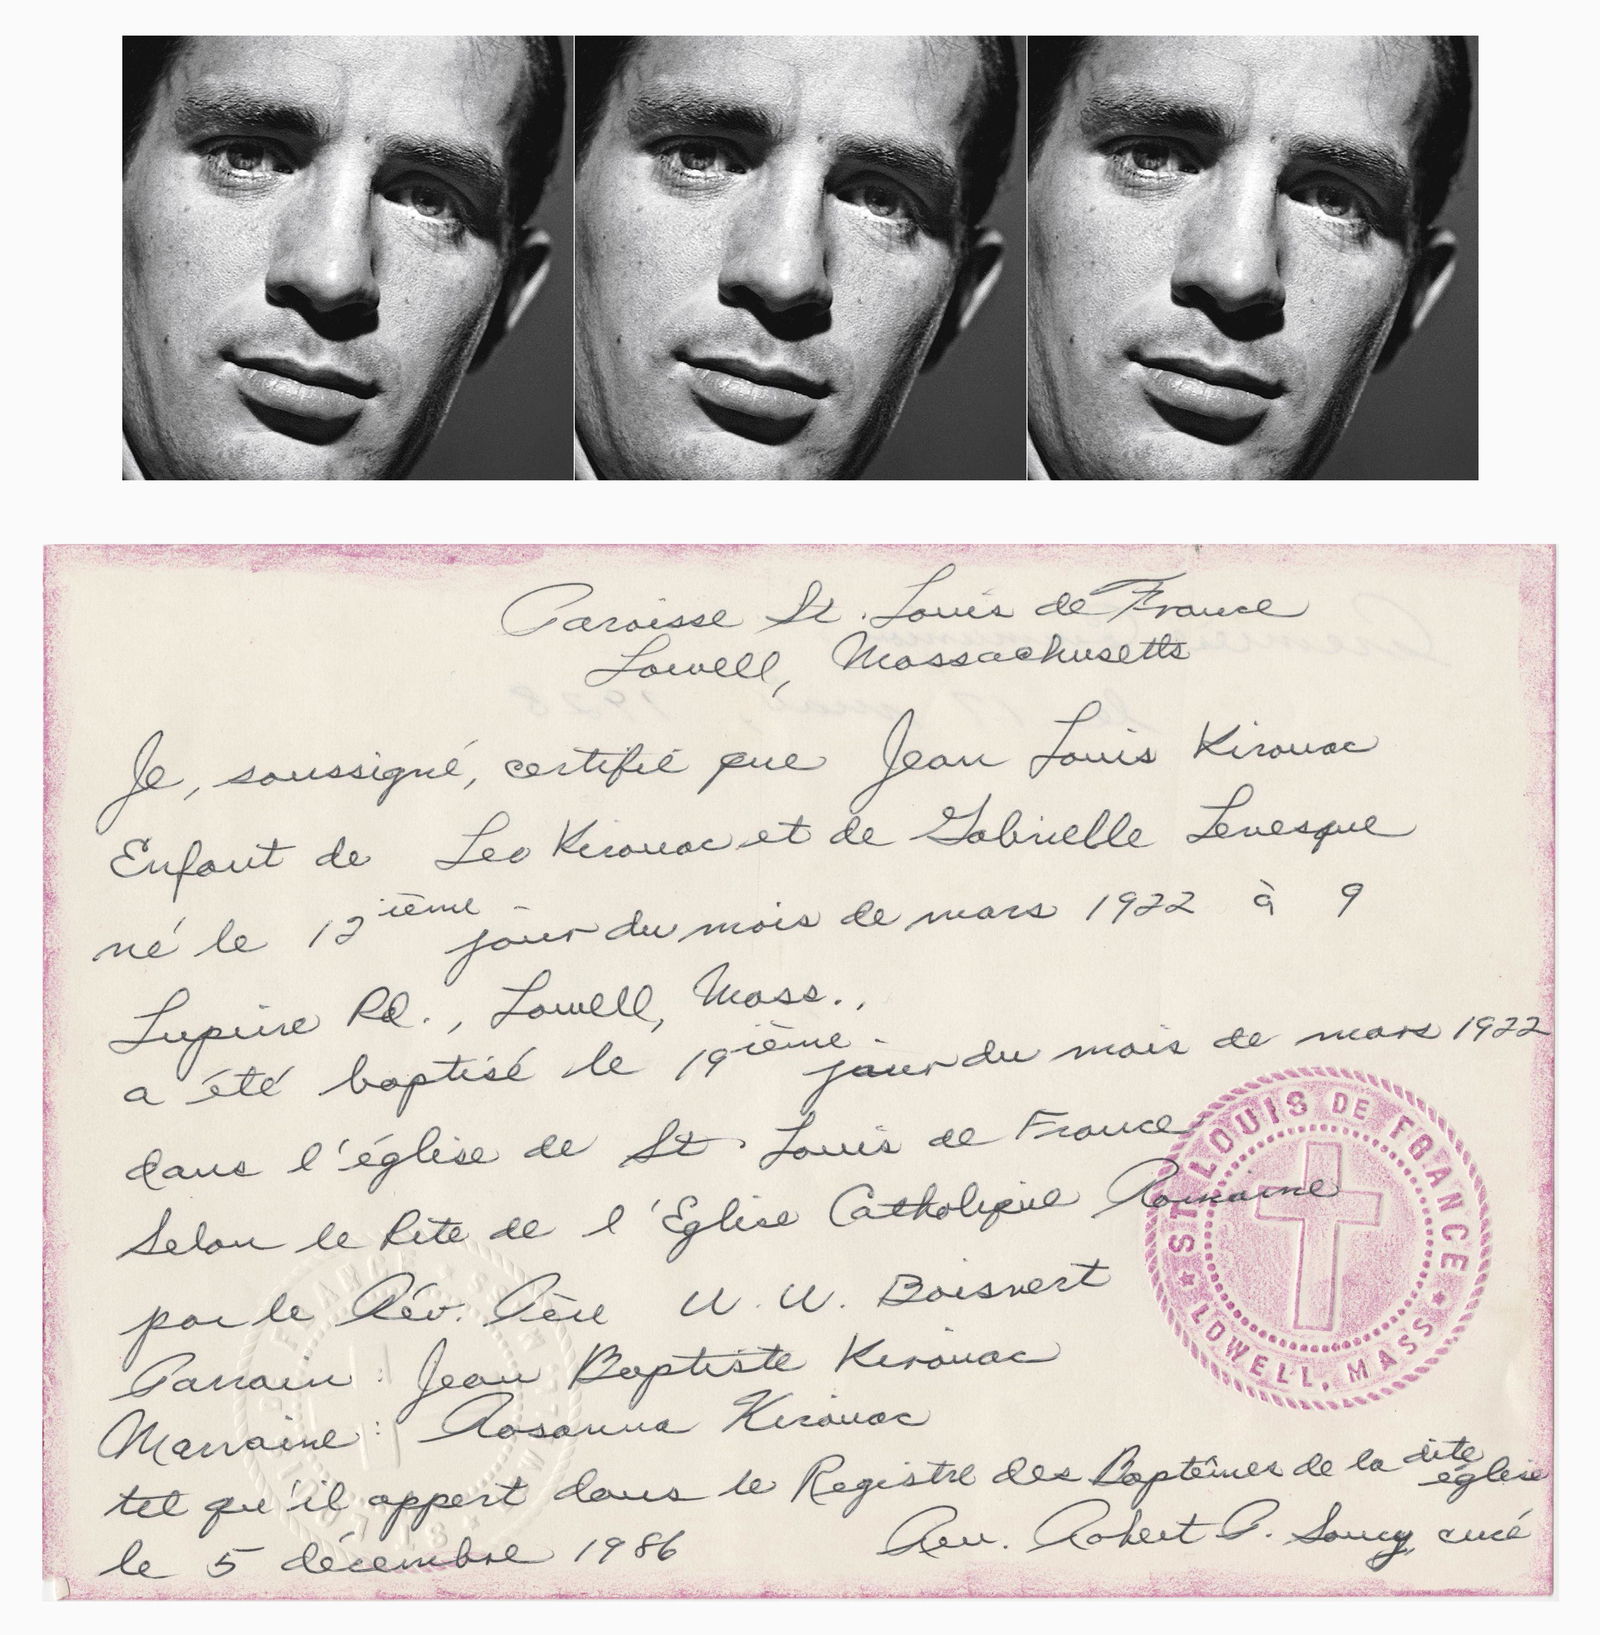 Paroisse St. Louis de France
Lowell, Massachusetts
Je, soussigné, certifie que Jean Louis Kirouac
Enfant de Leo Kirouac et de Gabrielle Levesque
né le 12ième jour du mois de mars 1922 à 9
Lupine Rd., Lowell, Mass.,
a été baptisé le 19ième jour du mois de mars 1922
dans l'église de St. Louis de France
Selon le Rite de l'Eglise Catholique Romaine
par le Rév. Père W. W. Boisvert
Parrain : Jean Baptiste Kirouac
Marraine : Rosanna Kirouac
tel qu'il appert dans le Registre des Baptêmes de la dite église
le 5 décembre 1986 Rev. Robert P. Soucy, curé
ST. LOUIS DE FRANCE
★ LOWELL, MASS. ★